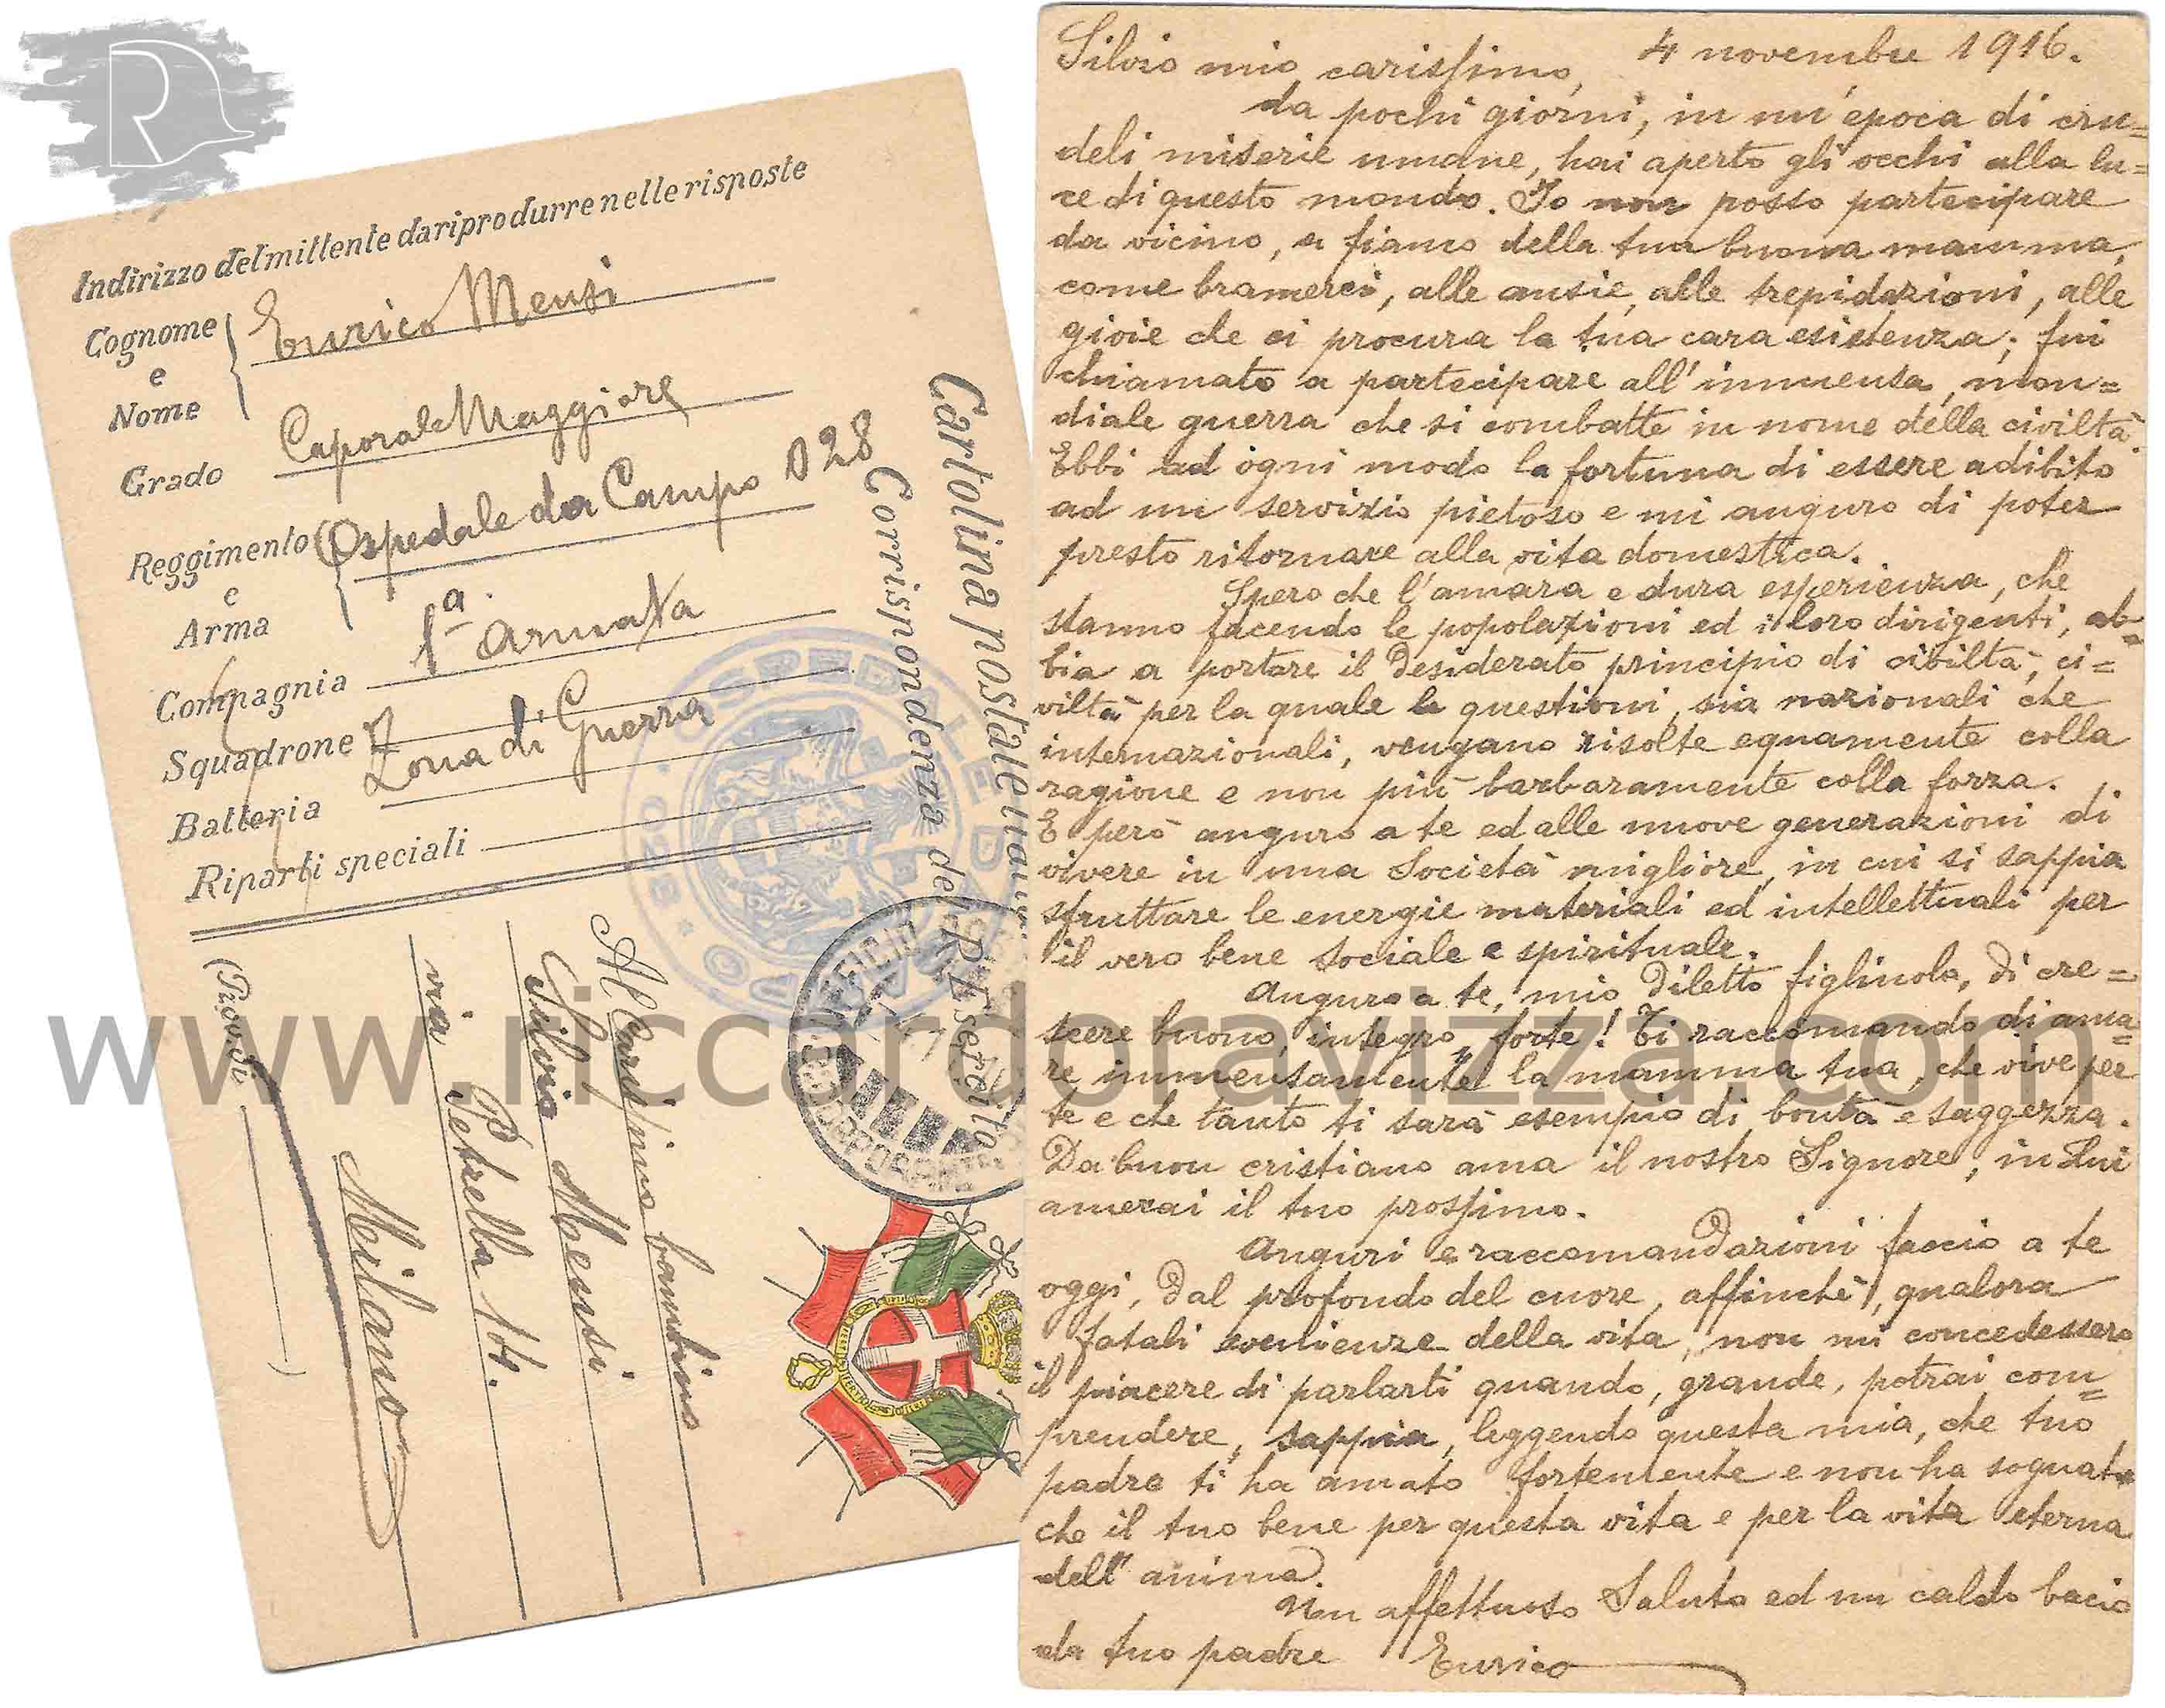 R
Indirizzo del mittente da riprodurre nelle risposte
Cognome
e
Nome
Enrico Mensi
Grado
Caporal Maggiore
Reggimento
e
Arma
Ospedale da Campo 028
Compagnia
1ª. Armata
Squadrone
Zona di Guerra
Batteria
Riparti speciali
Cartolina postale ital
Corrispondenza del R. Esercito
OSPEDALE DA CAMPO
028
UFFICIO
Al Carissimo bambino
Silvio Mensi
via Petrella 14.
Milano
(Prov. di )
Silvio mio carissimo, 4 novembre 1916.
da pochi giorni, in un'epoca di cru=
deli miserie umane, hai aperto gli occhi alla lu=
ce di questo mondo. Io non posso partecipare
da vicino, a fianco della tua buona mamma,
come bramerei, alle ansie, alle trepidazioni, alle
gioie che ci procura la tua cara esistenza; fui
chiamato a partecipare all'immensa, mon=
diale guerra che si combatte in nome della civiltà.
Ebbi ad ogni modo la fortuna di essere adibito
ad un servizio pietoso e mi auguro di poter
presto ritornare alla vita domestica.
Spero che l'amara e dura esperienza, che
stanno facendo le popolazioni ed i loro dirigenti, ab=
bia a portare il desiderato principio di civiltà, ci=
viltà per la quale le questioni, sia nazionali che
internazionali, vengano risolte equamente colla
ragione e non più barbaramente colla forza.
E però auguro a te ed alle nuove generazioni di
vivere in una Società migliore, in cui si sappia
sfruttare le energie materiali ed intellettuali per
il vero bene sociale e spirituale.
Auguro a te, mio diletto figliuolo, di cre=
scere buono, integro, forte! Ti raccomando di ama=
re immensamente la mamma tua, che vive per
te e che tanto ti sarà esempio di bontà e saggezza.
Da buon cristiano ama il nostro Signore, in Lui
amerai il tuo prossimo.
Auguri e raccomandazioni faccio a te
oggi, dal profondo del cuore, affinchè, qualora
fatali evenienze della vita, non mi concedessero
il piacere di parlarti quando, grande, potrai com=
prendere, sappia, leggendo questa mia, che tuo
padre ti ha amato fortemente e non ha sognato
che il tuo bene per questa vita e per la vita eterna
dell'anima.
Un affettuoso Saluto ed un caldo bacio
da tuo padre Enrico
www.riccardoravizza.com